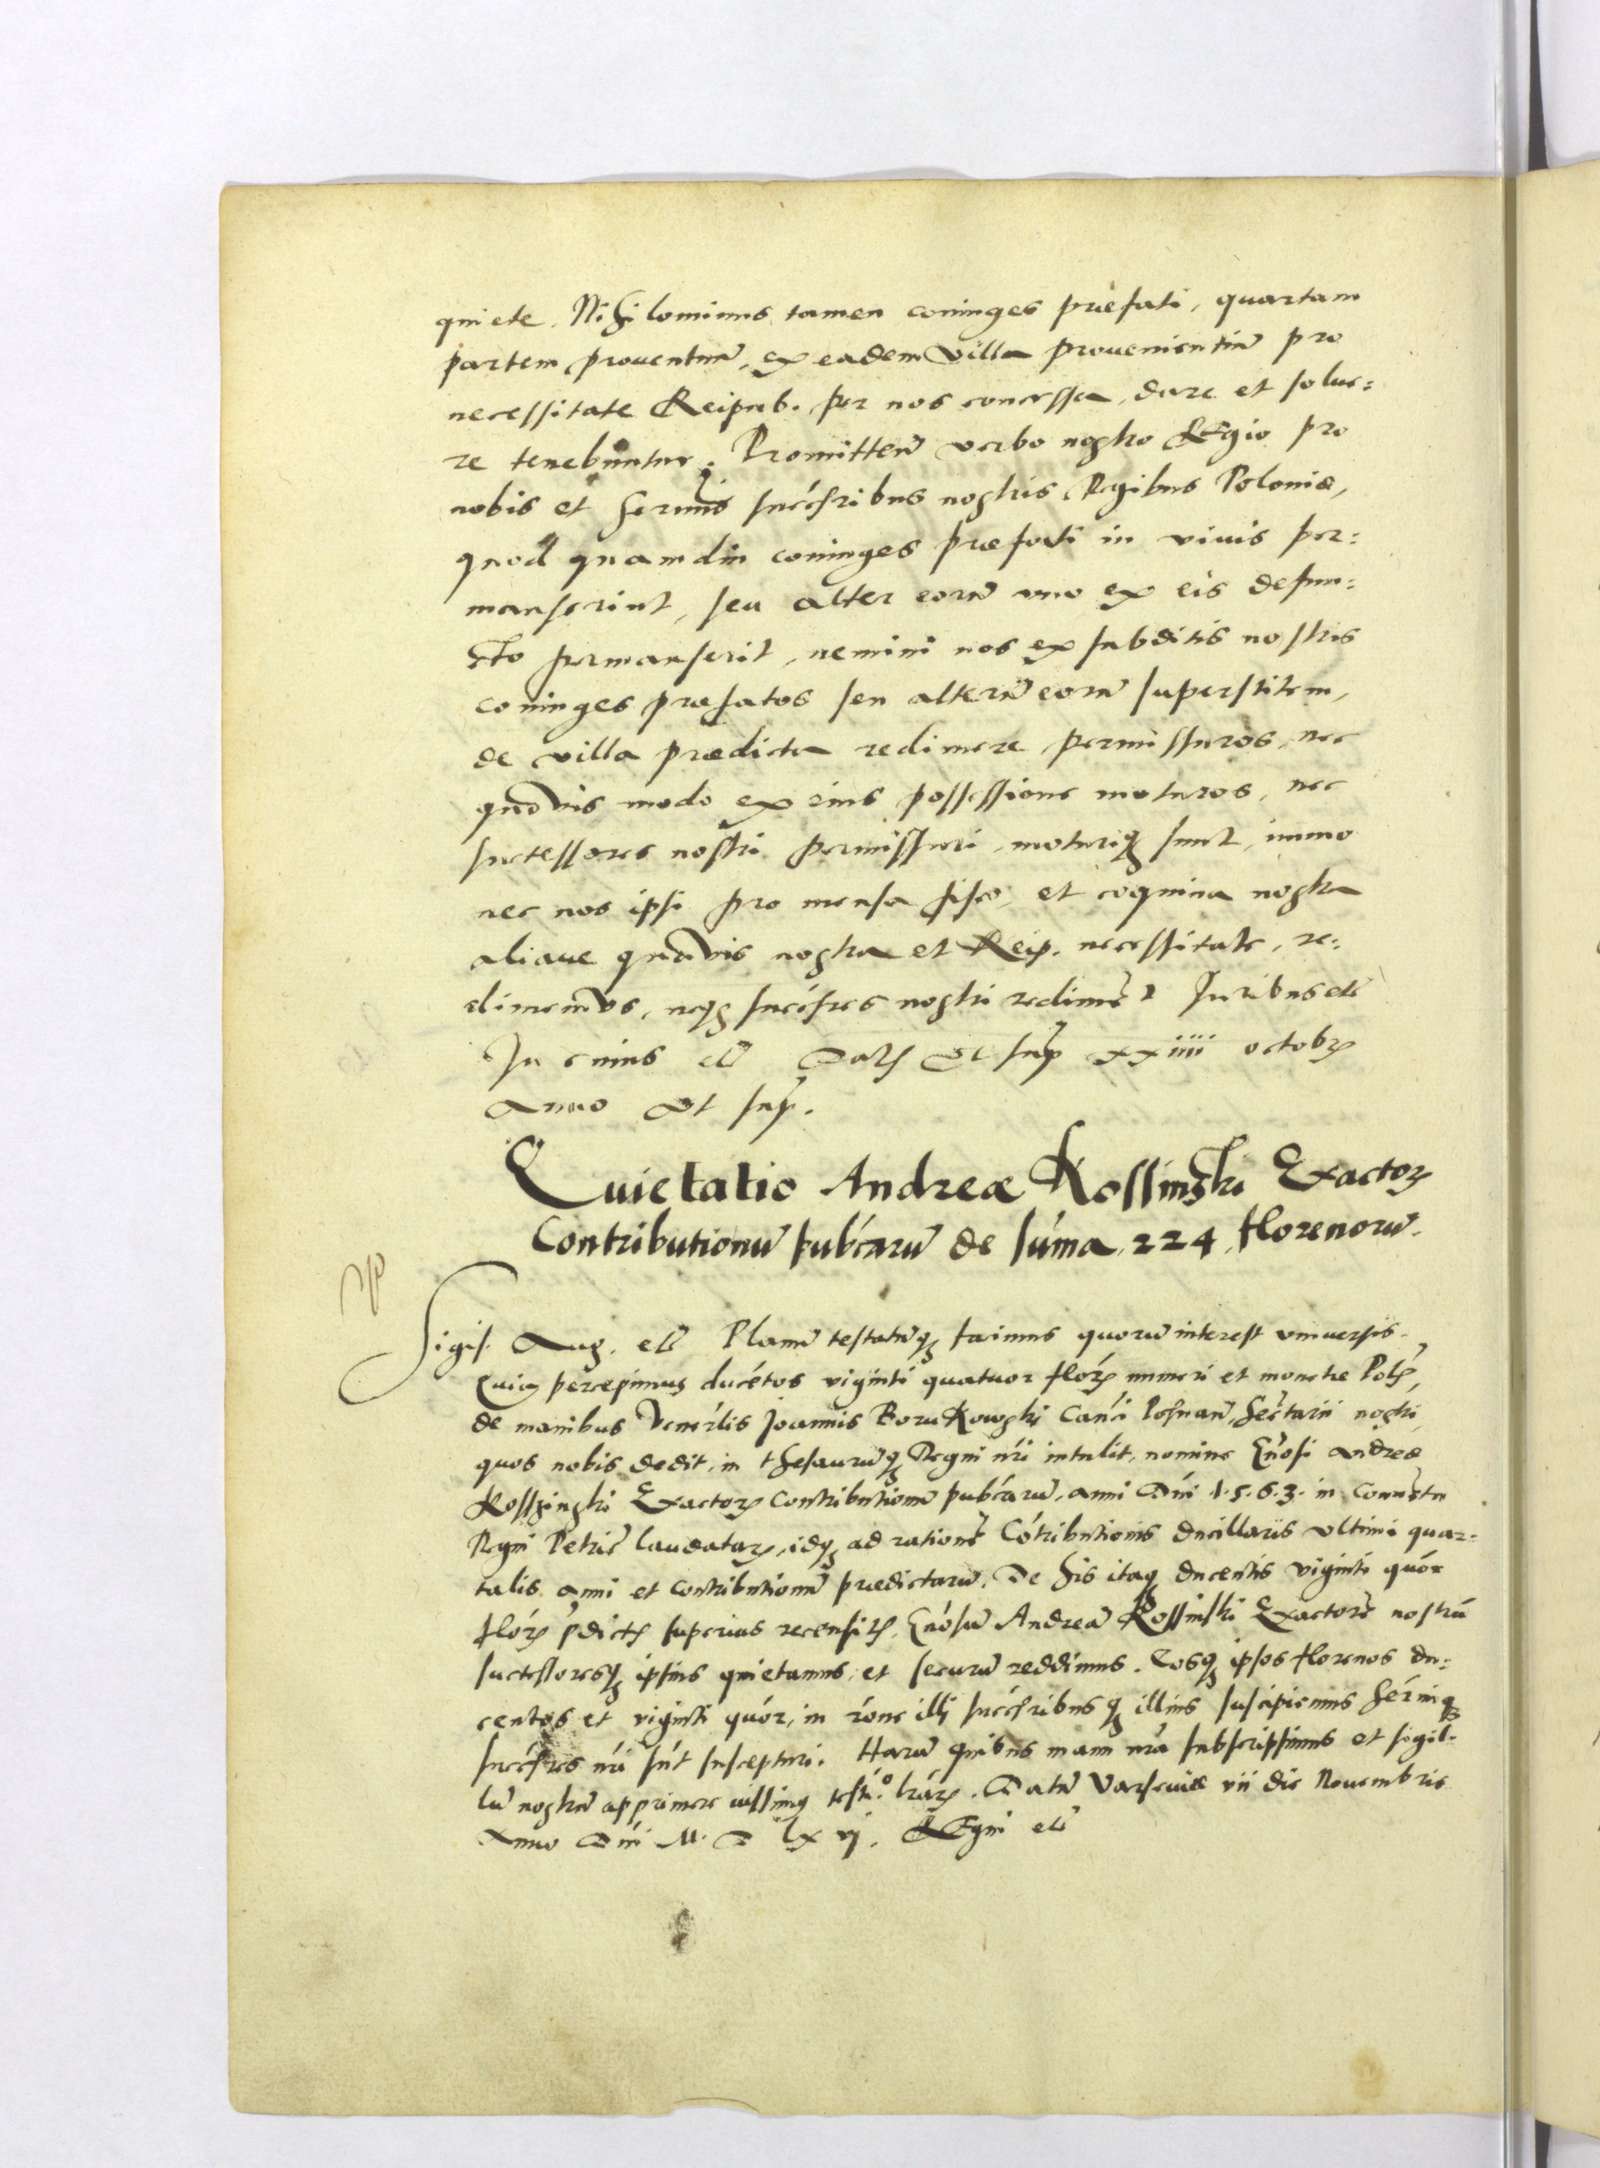 quiete. Nihilominus tamen coniuges præfati, quartam
partem prouentuũ, ex eadem villa prouenientiũ pro
necessitate Reipub. per nos concessa, dare et solue=
re tenebuntur. Promitten̄ verbo nostro Regio pro
nobis et Sermis succẽribus nostris Regibus Poloniæ,
quod quamdiu coniuges præfati in viuis per=
manserint, seu alter eorũ vno ex eis defun=
cto permanserit, nemini nos ex subditis nostris
coniuges præfatos seu alterũ eorũ superstitem,
de villa prædicta redimere permissuros, nec
quouis modo ex eius possessione moturos, nec
successores nostri permissuri, moturiq3 sunt, immo
nec nos ipsi pro mensa fisco, et coquina nostra
aliaue quauis nostra et Reip. necessitate, re=
dimemus, neq3 succẽres nostri rediment Iuribus etc
In cuius etc Datum vt sup̃ xxiiii octobris
Anno vt sup̃.
Quietatio Andreæ Kossinski Exactoris
Contributionũ pub́carũ de sum̃a 224 florenorũ.
Sigis. Aug. etc Planũ testatũq3 facimus quorũ interest vniuersis.
Quia percepimus ducẽtos viginti quatuor floř numeri et monetæ Poł,
de manibus Veneřlis Joannis Borukowski Canći Posnan̄, Secřtarii nostri,
quos nobis dedit, in thesaurũq3 Regni nři intulit, nomine Gn̄osi Andreæ
Kosszinski Exactoris Contributionũ pub́carũ, anni Dn̄i 1.5.6.3. in Conuẽtu
Regni Petric̄ laudatarũ, idq3 ad rationẽ Cõtributionis ducillaris vltimi quar=
talis anni et contributionũ prædictarũ. De his itaq3 ducentis viginti quõr
floř p̃dictis superius recensitis, Gn̄osũ Andreã Kossinski Exactorẽ nostrũ
successoresq3 ipsius quietamus, et securũ reddimus. Eosq3 ipsos florenos du=
centos et viginti quõr, in rõne illi succẽribusq3 illius suscipiemus Seřmiq3
succẽres nři sũt suscepturi. Harũ quibus manu nřa subscripsimus et sigil=
lũ nostrũ apprimere iussimus testĩo lřarũ. Datũ Varseuiæ vii die Nouembris
Anno Dn̄i M. D lx vj. Regni etc